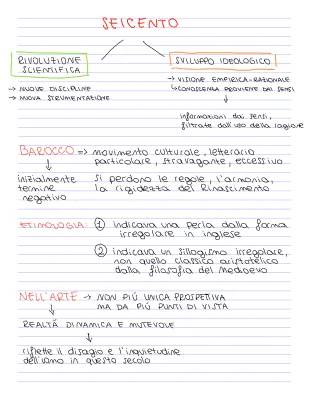 SEICENTO
RIVOLUZIONE
SCIENTIFICA
SVILUPPO IDEOLOGICO
→ NUOVE DISCIPLINE
→ NUOVA STRUMENTAZIONE
→ VISIONE EMPIRICA-RAZIONALE
↳ CONOSCENZA PROVIENE DAI SENSI
informazioni dai sensi,
filtrate dall'uso della ragione
BAROCCO => movimento culturale, letterario
particolare, stravagante, eccessivo
inizialmente
termine
negativo
si perdono le regole, l'armonia,
la rigidezza del Rinascimento
ETIMOLOGIA: ① indicava una perla dalla forma
irregolare in inglese
② indicava un sillogismo irregolare,
non quello classico aristotelico
dalla filosofia del Medioevo
NELL'ARTE → NON PIÙ UNICA PROSPETTIVA
MA DA PIÙ PUNTI DI VISTA
REALTÀ DINAMICA E MUTEVOLE
riflette il disagio e l'inquietudine
dell'uomo in questo secolo